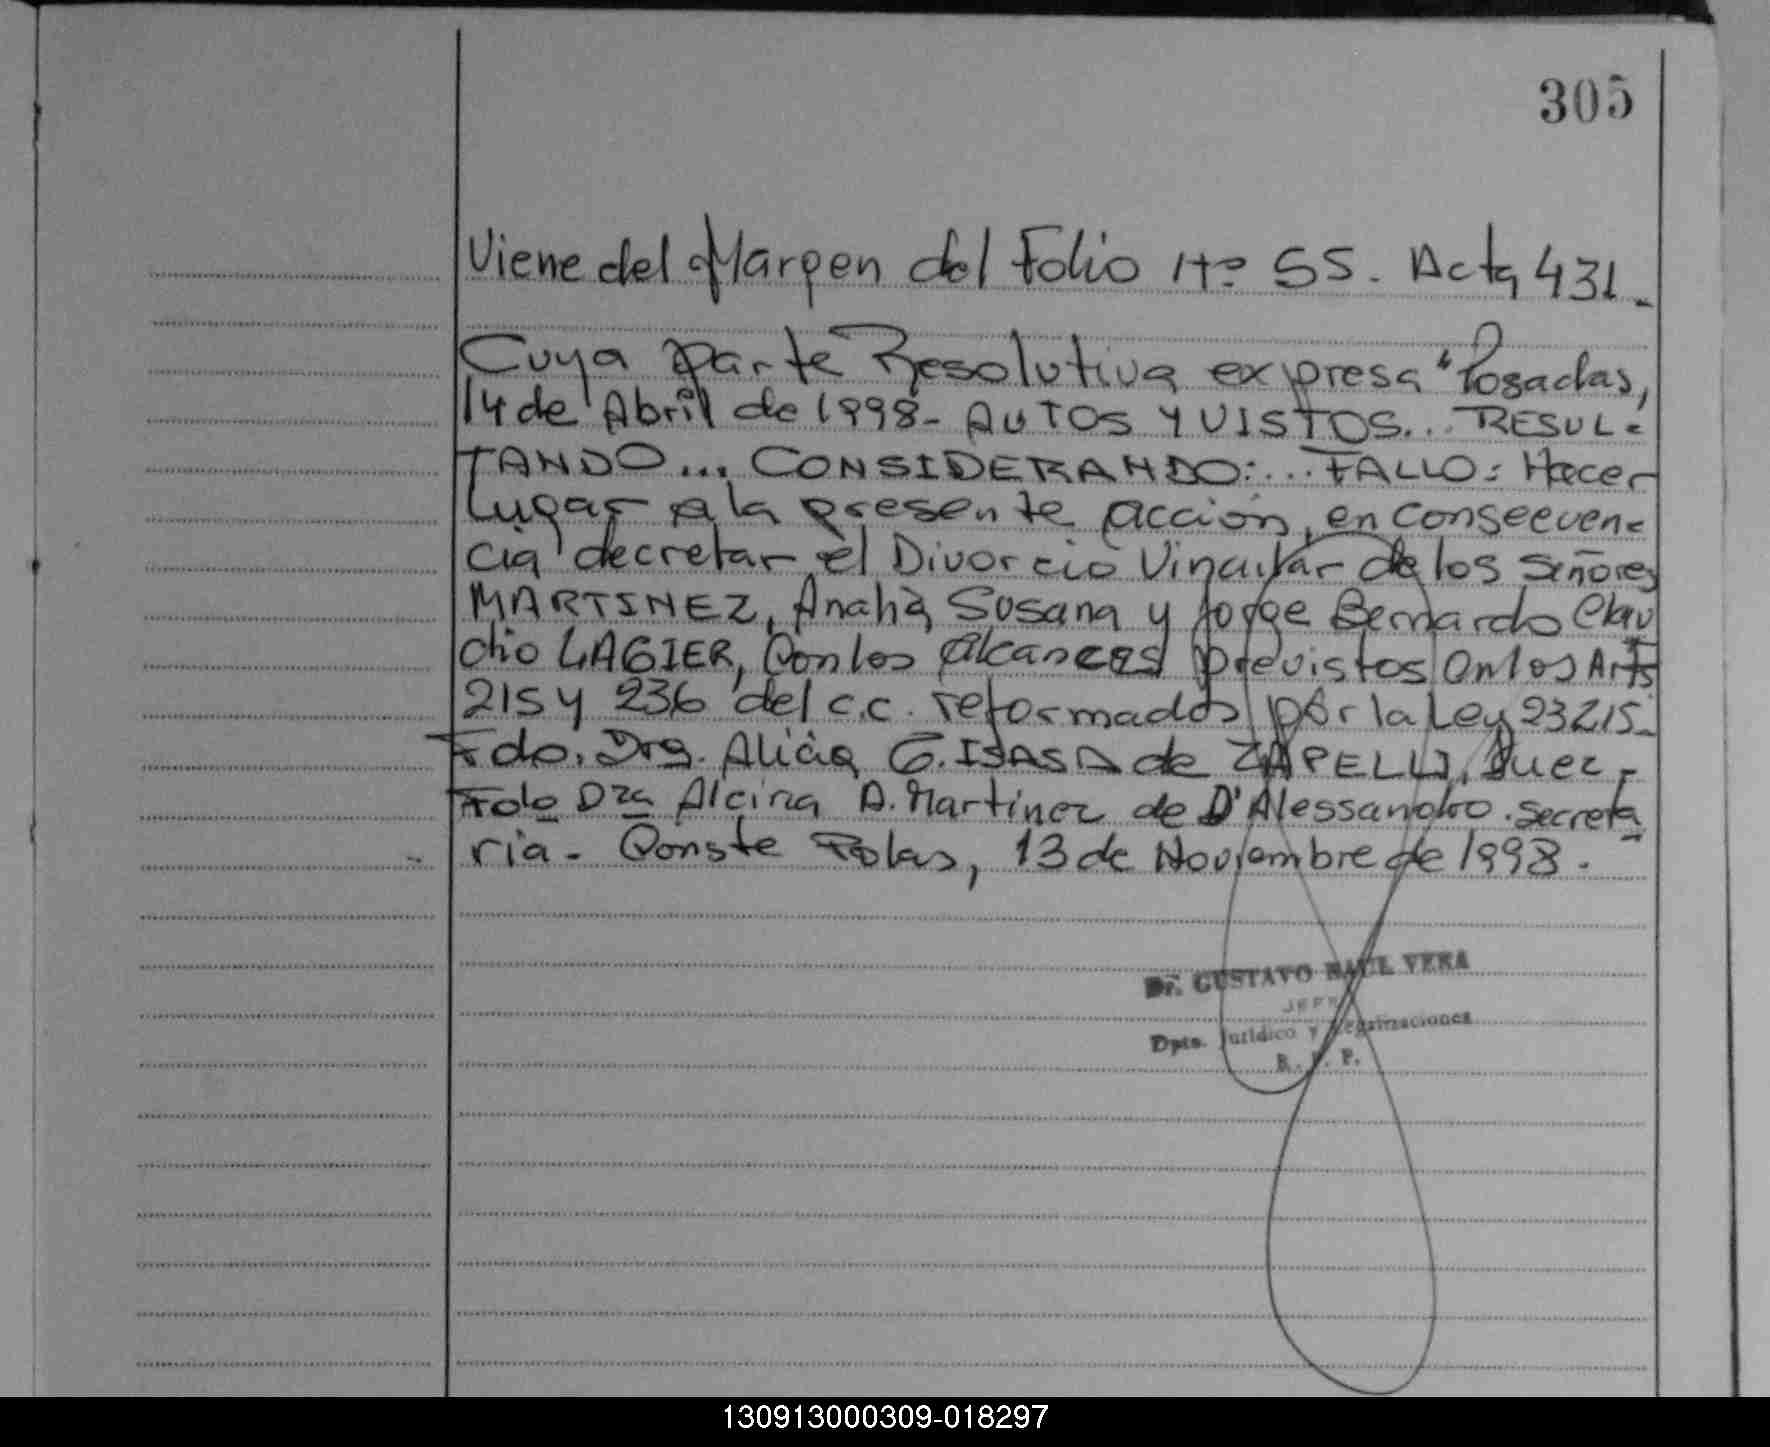 305
Viene del Margen del Folio Nº 55. Acta 431.
Cuya parte Resolutiva expresa "Posadas,
14 de Abril de 1998- AUTOS Y VISTOS... RESUL-
TANDO... CONSIDERANDO:... FALLO: Hacer
Lugar a la presente acción, en consecuen-
cia decretar el Divorcio Vincular de los Señores
MARTINEZ, Analía Susana y Jorge Bernardo Clau
dio LAGIER, Con los alcances previstos en los Arts
215 y 236 del c.c. reformados por la Ley 23215.
Fdo. Dra. Alicia G. ISASA de ZAPELLI, Juez.-
Fdo Dra Alcira A. Martinez de D'Alessandro. secreta
ria. Conste Pdas, 13 de Noviembre de 1998.
Dr. GUSTAVO RAUL VERA
JEFE
Dpto. Jurídico y Legalizaciones
R. P. P.
130913000309-018297